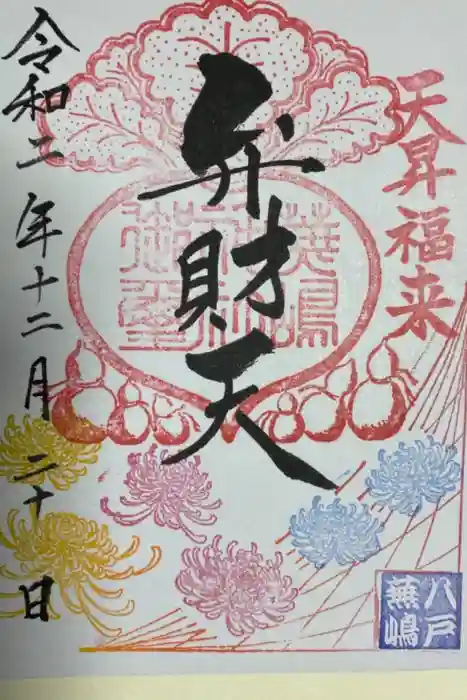 天昇福来
弁財天
蕪嶋
神社
御璽
令和二年十二月二十日
八戸
蕪嶋